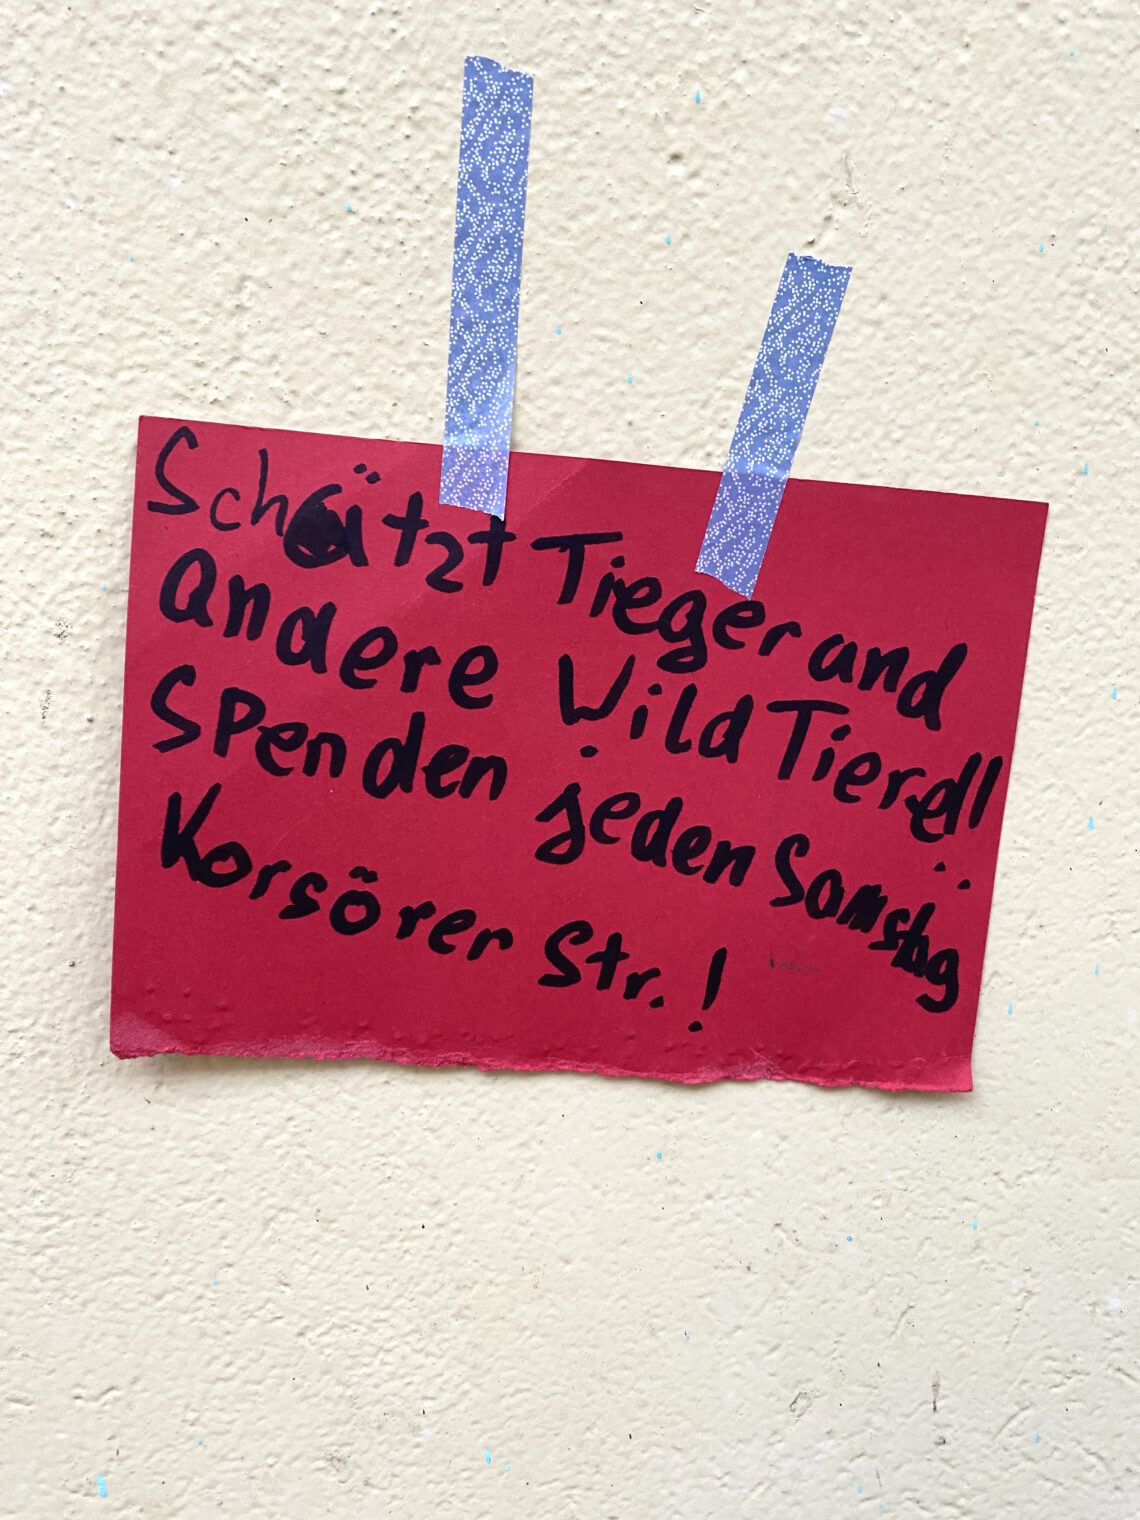 Schätzt Tieger and
andere Wild Tiere!!
Spenden jeden Samstag
Korsörer Str.!